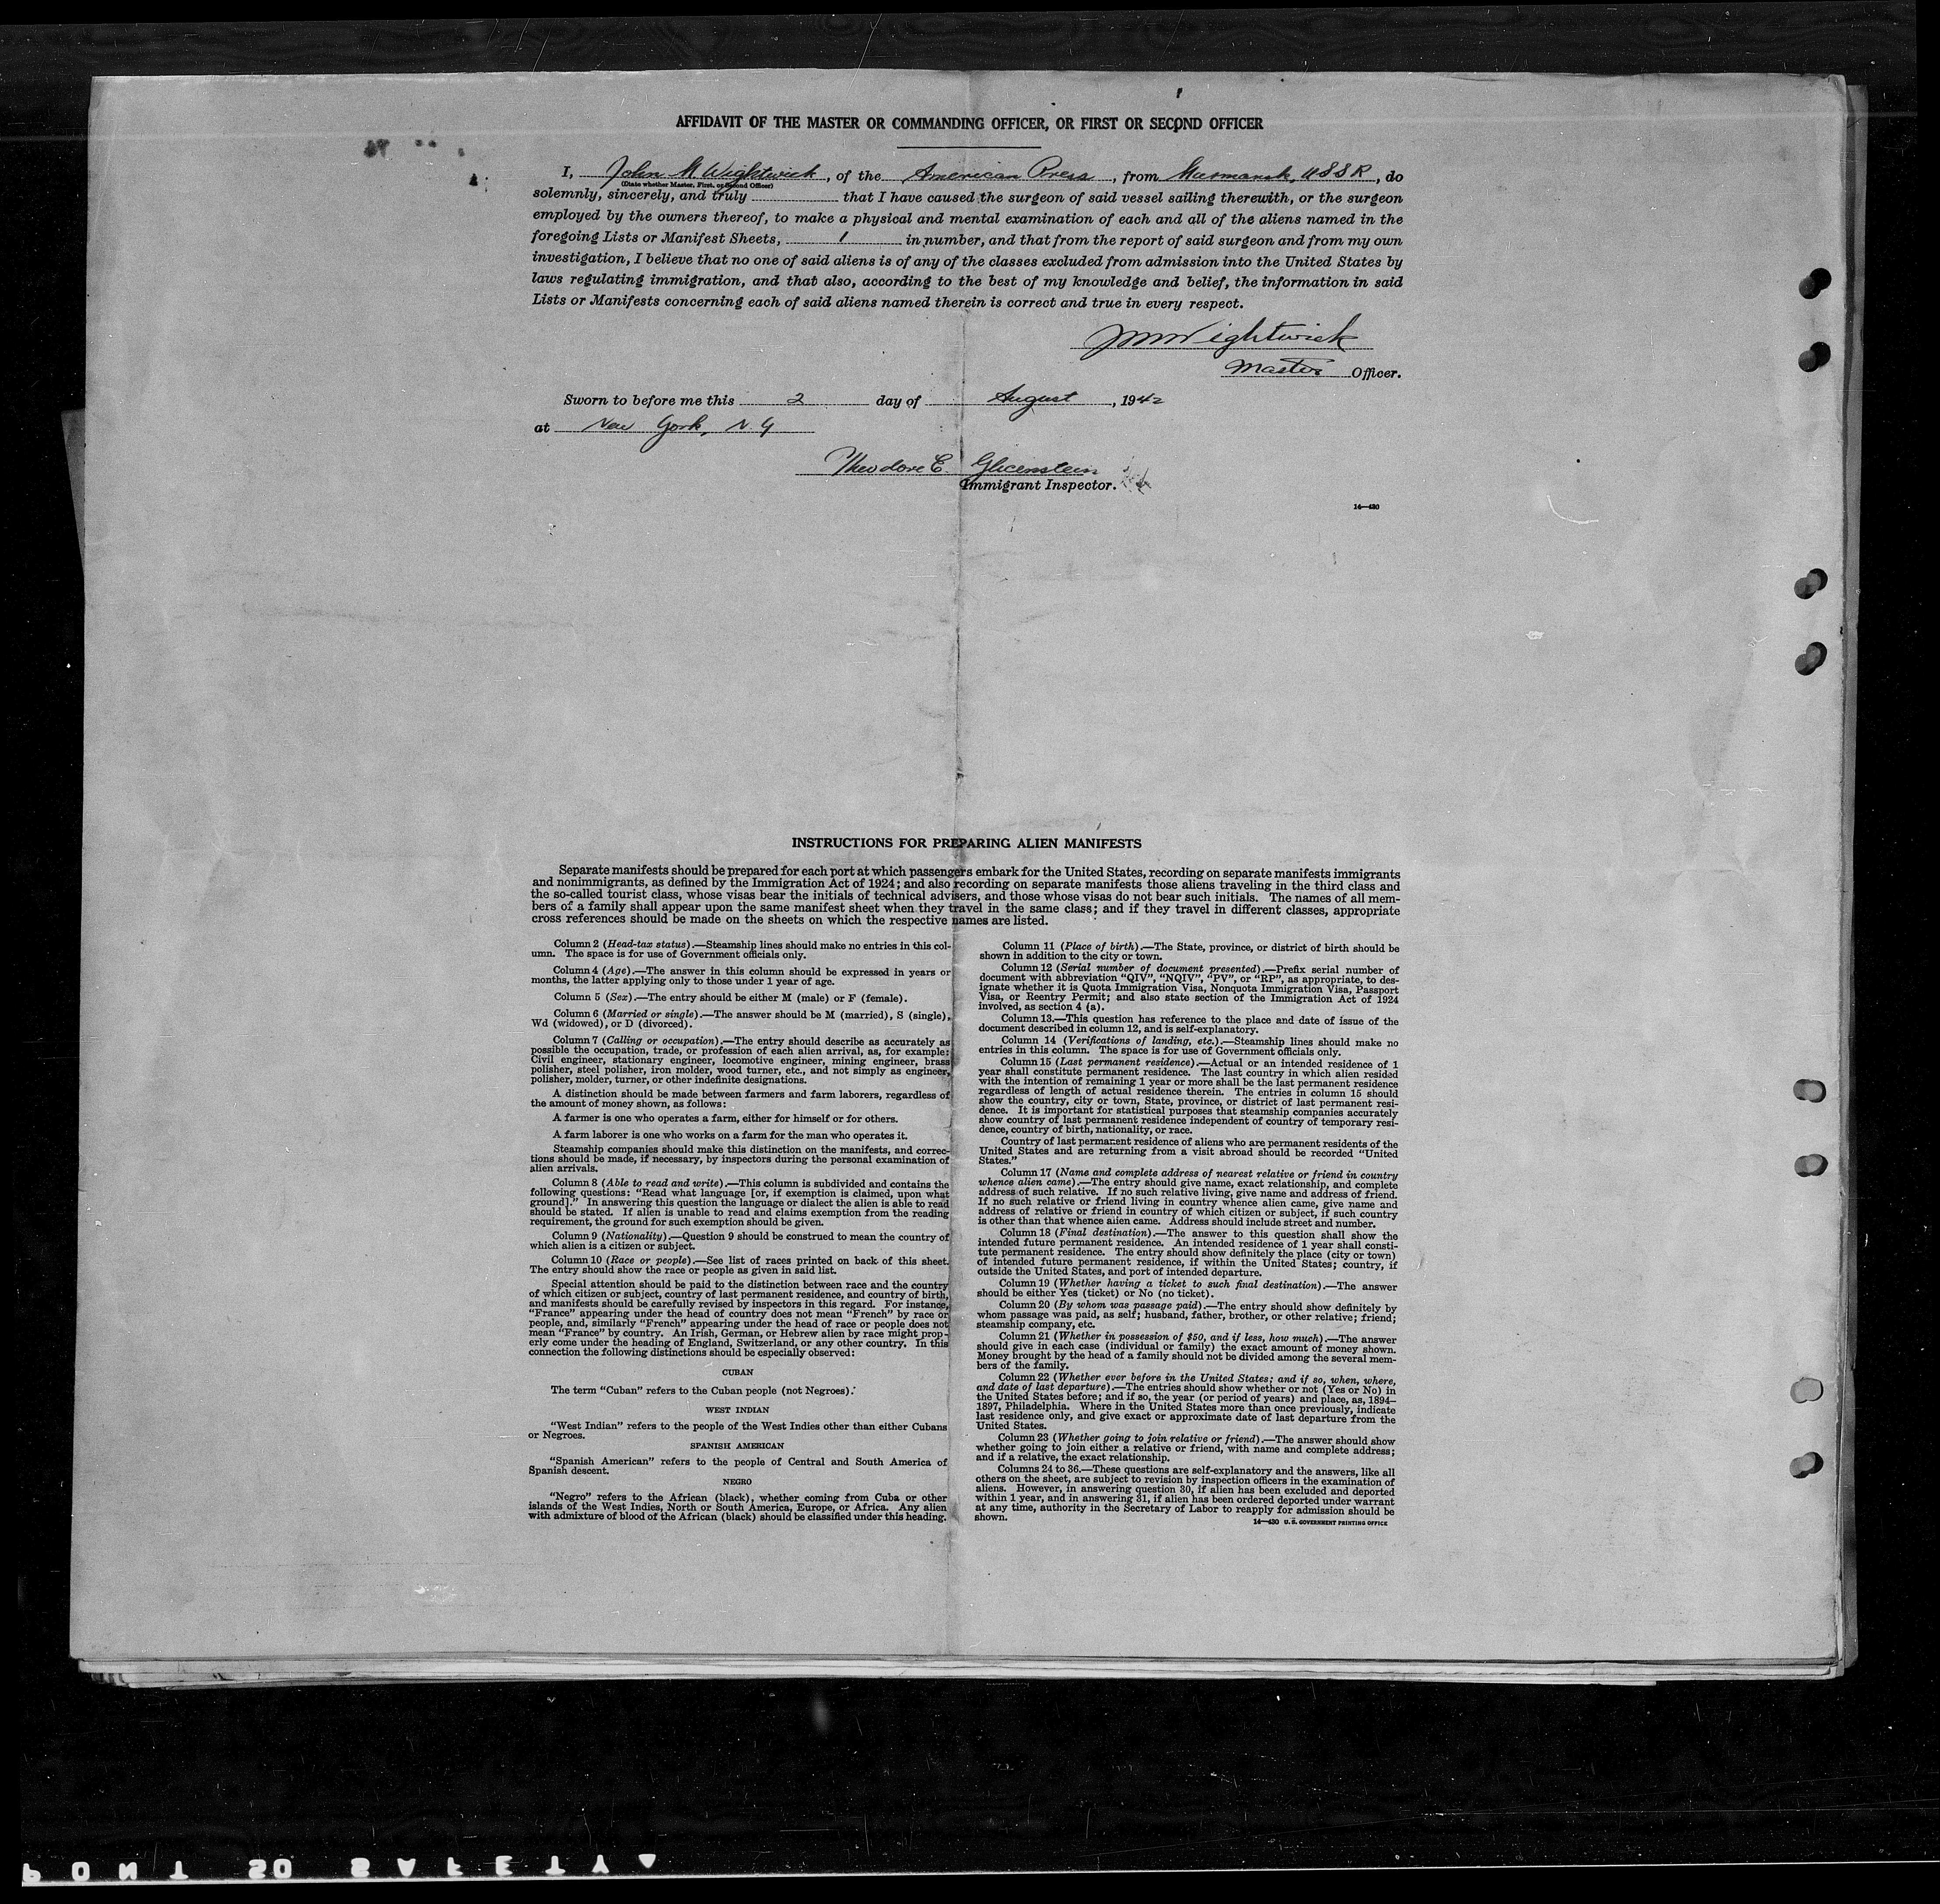 AFFIDAVIT OF THE MASTER OR COMMANDING OFFICER, OR FIRST OR SECOND OFFICER
I, John M. Wightwick, of the American Press, from Murmansk, USSR, do
(State whether Master, First, or Second Officer)
solemnly, sincerely, and truly that I have caused the surgeon of said vessel sailing therewith, or the surgeon
employed by the owners thereof, to make a physical and mental examination of each and all of the aliens named in the
foregoing Lists or Manifest Sheets, 1 in number, and that from the report of said surgeon and from my own
investigation, I believe that no one of said aliens is of any of the classes excluded from admission into the United States by
laws regulating immigration, and that also, according to the best of my knowledge and belief, the information in said
Lists or Manifests concerning each of said aliens named therein is correct and true in every respect.
JMWightwick
Master Officer.
Sworn to before me this 2 day of August, 1942
at New York, N.Y
Theodore E. Glicenstein
Immigrant Inspector.
14—430
INSTRUCTIONS FOR PREPARING ALIEN MANIFESTS
Separate manifests should be prepared for each port at which passengers embark for the United States, recording on separate manifests immigrants
and nonimmigrants, as defined by the Immigration Act of 1924; and also recording on separate manifests those aliens traveling in the third class and
the so-called tourist class, whose visas bear the initials of technical advisers, and those whose visas do not bear such initials. The names of all mem-
bers of a family shall appear upon the same manifest sheet when they travel in the same class; and if they travel in different classes, appropriate
cross references should be made on the sheets on which the respective names are listed.
Column 2 (Head-tax status).—Steamship lines should make no entries in this col-
umn. The space is for use of Government officials only.
Column 4 (Age).—The answer in this column should be expressed in years or
months, the latter applying only to those under 1 year of age.
Column 5 (Sex).—The entry should be either M (male) or F (female).
Column 6 (Married or single).—The answer should be M (married), S (single),
Wd (widowed), or D (divorced).
Column 7 (Calling or occupation).—The entry should describe as accurately as
possible the occupation, trade, or profession of each alien arrival, as, for example:
Civil engineer, stationary engineer, locomotive engineer, mining engineer, brass
polisher, steel polisher, iron molder, wood turner, etc., and not simply as engineer,
polisher, molder, turner, or other indefinite designations.
A distinction should be made between farmers and farm laborers, regardless of
the amount of money shown, as follows:
A farmer is one who operates a farm, either for himself or for others.
A farm laborer is one who works on a farm for the man who operates it.
Steamship companies should make this distinction on the manifests, and correc-
tions should be made, if necessary, by inspectors during the personal examination of
alien arrivals.
Column 8 (Able to read and write).—This column is subdivided and contains the
following questions: "Read what language [or, if exemption is claimed, upon what
ground]." In answering this question the language or dialect the alien is able to read
should be stated. If alien is unable to read and claims exemption from the reading
requirement, the ground for such exemption should be given.
Column 9 (Nationality).—Question 9 should be construed to mean the country of
which alien is a citizen or subject.
Column 10 (Race or people).—See list of races printed on back of this sheet.
The entry should show the race or people as given in said list.
Special attention should be paid to the distinction between race and the country
of which citizen or subject, country of last permanent residence, and country of birth,
and manifests should be carefully revised by inspectors in this regard. For instance,
"France" appearing under the head of country does not mean "French" by race or
people, and, similarly "French" appearing under the head of race or people does not
mean "France" by country. An Irish, German, or Hebrew alien by race might prop-
erly come under the heading of England, Switzerland, or any other country. In this
connection the following distinctions should be especially observed:
CUBAN
The term "Cuban" refers to the Cuban people (not Negroes).
WEST INDIAN
"West Indian" refers to the people of the West Indies other than either Cubans
or Negroes.
SPANISH AMERICAN
"Spanish American" refers to the people of Central and South America of
Spanish descent.
NEGRO
"Negro" refers to the African (black), whether coming from Cuba or other
islands of the West Indies, North or South America, Europe, or Africa. Any alien
with admixture of blood of the African (black) should be classified under this heading.
Column 11 (Place of birth).—The State, province, or district of birth should be
shown in addition to the city or town.
Column 12 (Serial number of document presented).—Prefix serial number of
document with abbreviation "QIV", "NQIV", "PV", or "RP", as appropriate, to des-
ignate whether it is Quota Immigration Visa, Nonquota Immigration Visa, Passport
Visa, or Reentry Permit; and also state section of the Immigration Act of 1924
involved, as section 4 (a).
Column 13.—This question has reference to the place and date of issue of the
document described in column 12, and is self-explanatory.
Column 14 (Verifications of landing, etc.).—Steamship lines should make no
entries in this column. The space is for use of Government officials only.
Column 15 (Last permanent residence).—Actual or an intended residence of 1
year shall constitute permanent residence. The last country in which alien resided
with the intention of remaining 1 year or more shall be the last permanent residence
regardless of length of actual residence therein. The entries in column 15 should
show the country, city or town, State, province, or district of last permanent resi-
dence. It is important for statistical purposes that steamship companies accurately
show country of last permanent residence independent of country of temporary resi-
dence, country of birth, nationality, or race.
Country of last permanent residence of aliens who are permanent residents of the
United States and are returning from a visit abroad should be recorded "United
States."
Column 17 (Name and complete address of nearest relative or friend in country
whence alien came).—The entry should give name, exact relationship, and complete
address of such relative. If no such relative living, give name and address of friend.
If no such relative or friend living in country whence alien came, give name and
address of relative or friend in country of which citizen or subject, if such country
is other than that whence alien came. Address should include street and number.
Column 18 (Final destination).—The answer to this question shall show the
intended future permanent residence. An intended residence of 1 year shall consti-
tute permanent residence. The entry should show definitely the place (city or town)
of intended future permanent residence, if within the United States; country, if
outside the United States, and port of intended departure.
Column 19 (Whether having a ticket to such final destination).—The answer
should be either Yes (ticket) or No (no ticket).
Column 20 (By whom was passage paid).—The entry should show definitely by
whom passage was paid, as self; husband, father, brother, or other relative; friend;
steamship company, etc.
Column 21 (Whether in possession of $50, and if less, how much).—The answer
should give in each case (individual or family) the exact amount of money shown.
Money brought by the head of a family should not be divided among the several mem-
bers of the family.
Column 22 (Whether ever before in the United States; and if so, when, where,
and date of last departure).—The entries should show whether or not (Yes or No) in
the United States before; and if so, the year (or period of years) and place, as, 1894–
1897, Philadelphia. Where in the United States more than once previously, indicate
last residence only, and give exact or approximate date of last departure from the
United States.
Column 23 (Whether going to join relative or friend).—The answer should show
whether going to join either a relative or friend, with name and complete address;
and if a relative, the exact relationship.
Columns 24 to 36.—These questions are self-explanatory and the answers, like all
others on the sheet, are subject to revision by inspection officers in the examination of
aliens. However, in answering question 30, if alien has been excluded and deported
within 1 year, and in answering 31, if alien has been ordered deported under warrant
at any time, authority in the Secretary of Labor to reapply for admission should be
shown.
14—430 U. S. GOVERNMENT PRINTING OFFICE
PONT 20 SAFETY